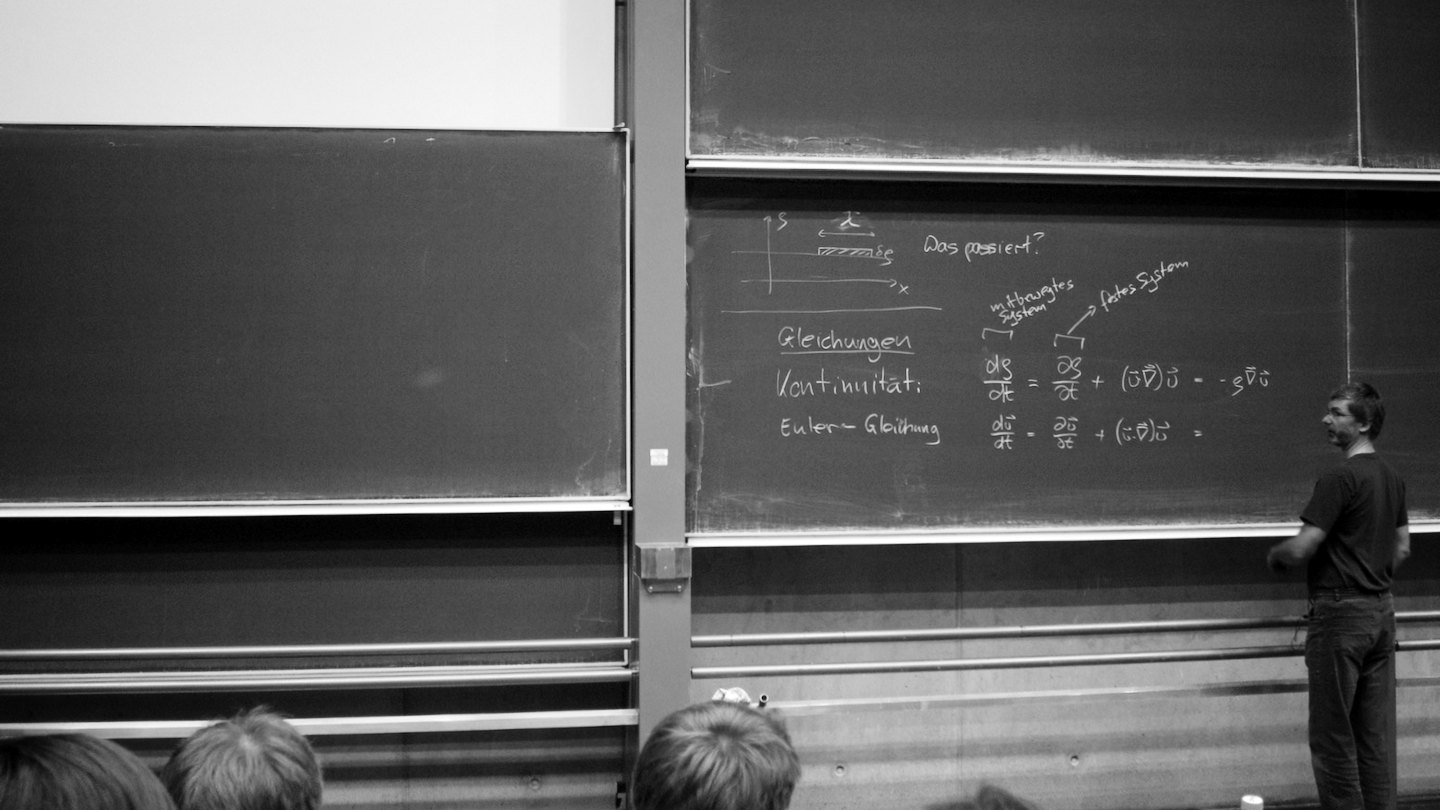 ρ
λ
δρ
x
Was passiert?
mitbewegtes
System
festes System
Gleichungen
Kontinuität: dρ/dt = ∂ρ/∂t + (υ⃗∇⃗)υ⃗ = -ρ∇⃗υ⃗
Euler-Gleichung dυ⃗/dt = ∂υ⃗/∂t + (υ⃗·∇⃗)υ⃗ =